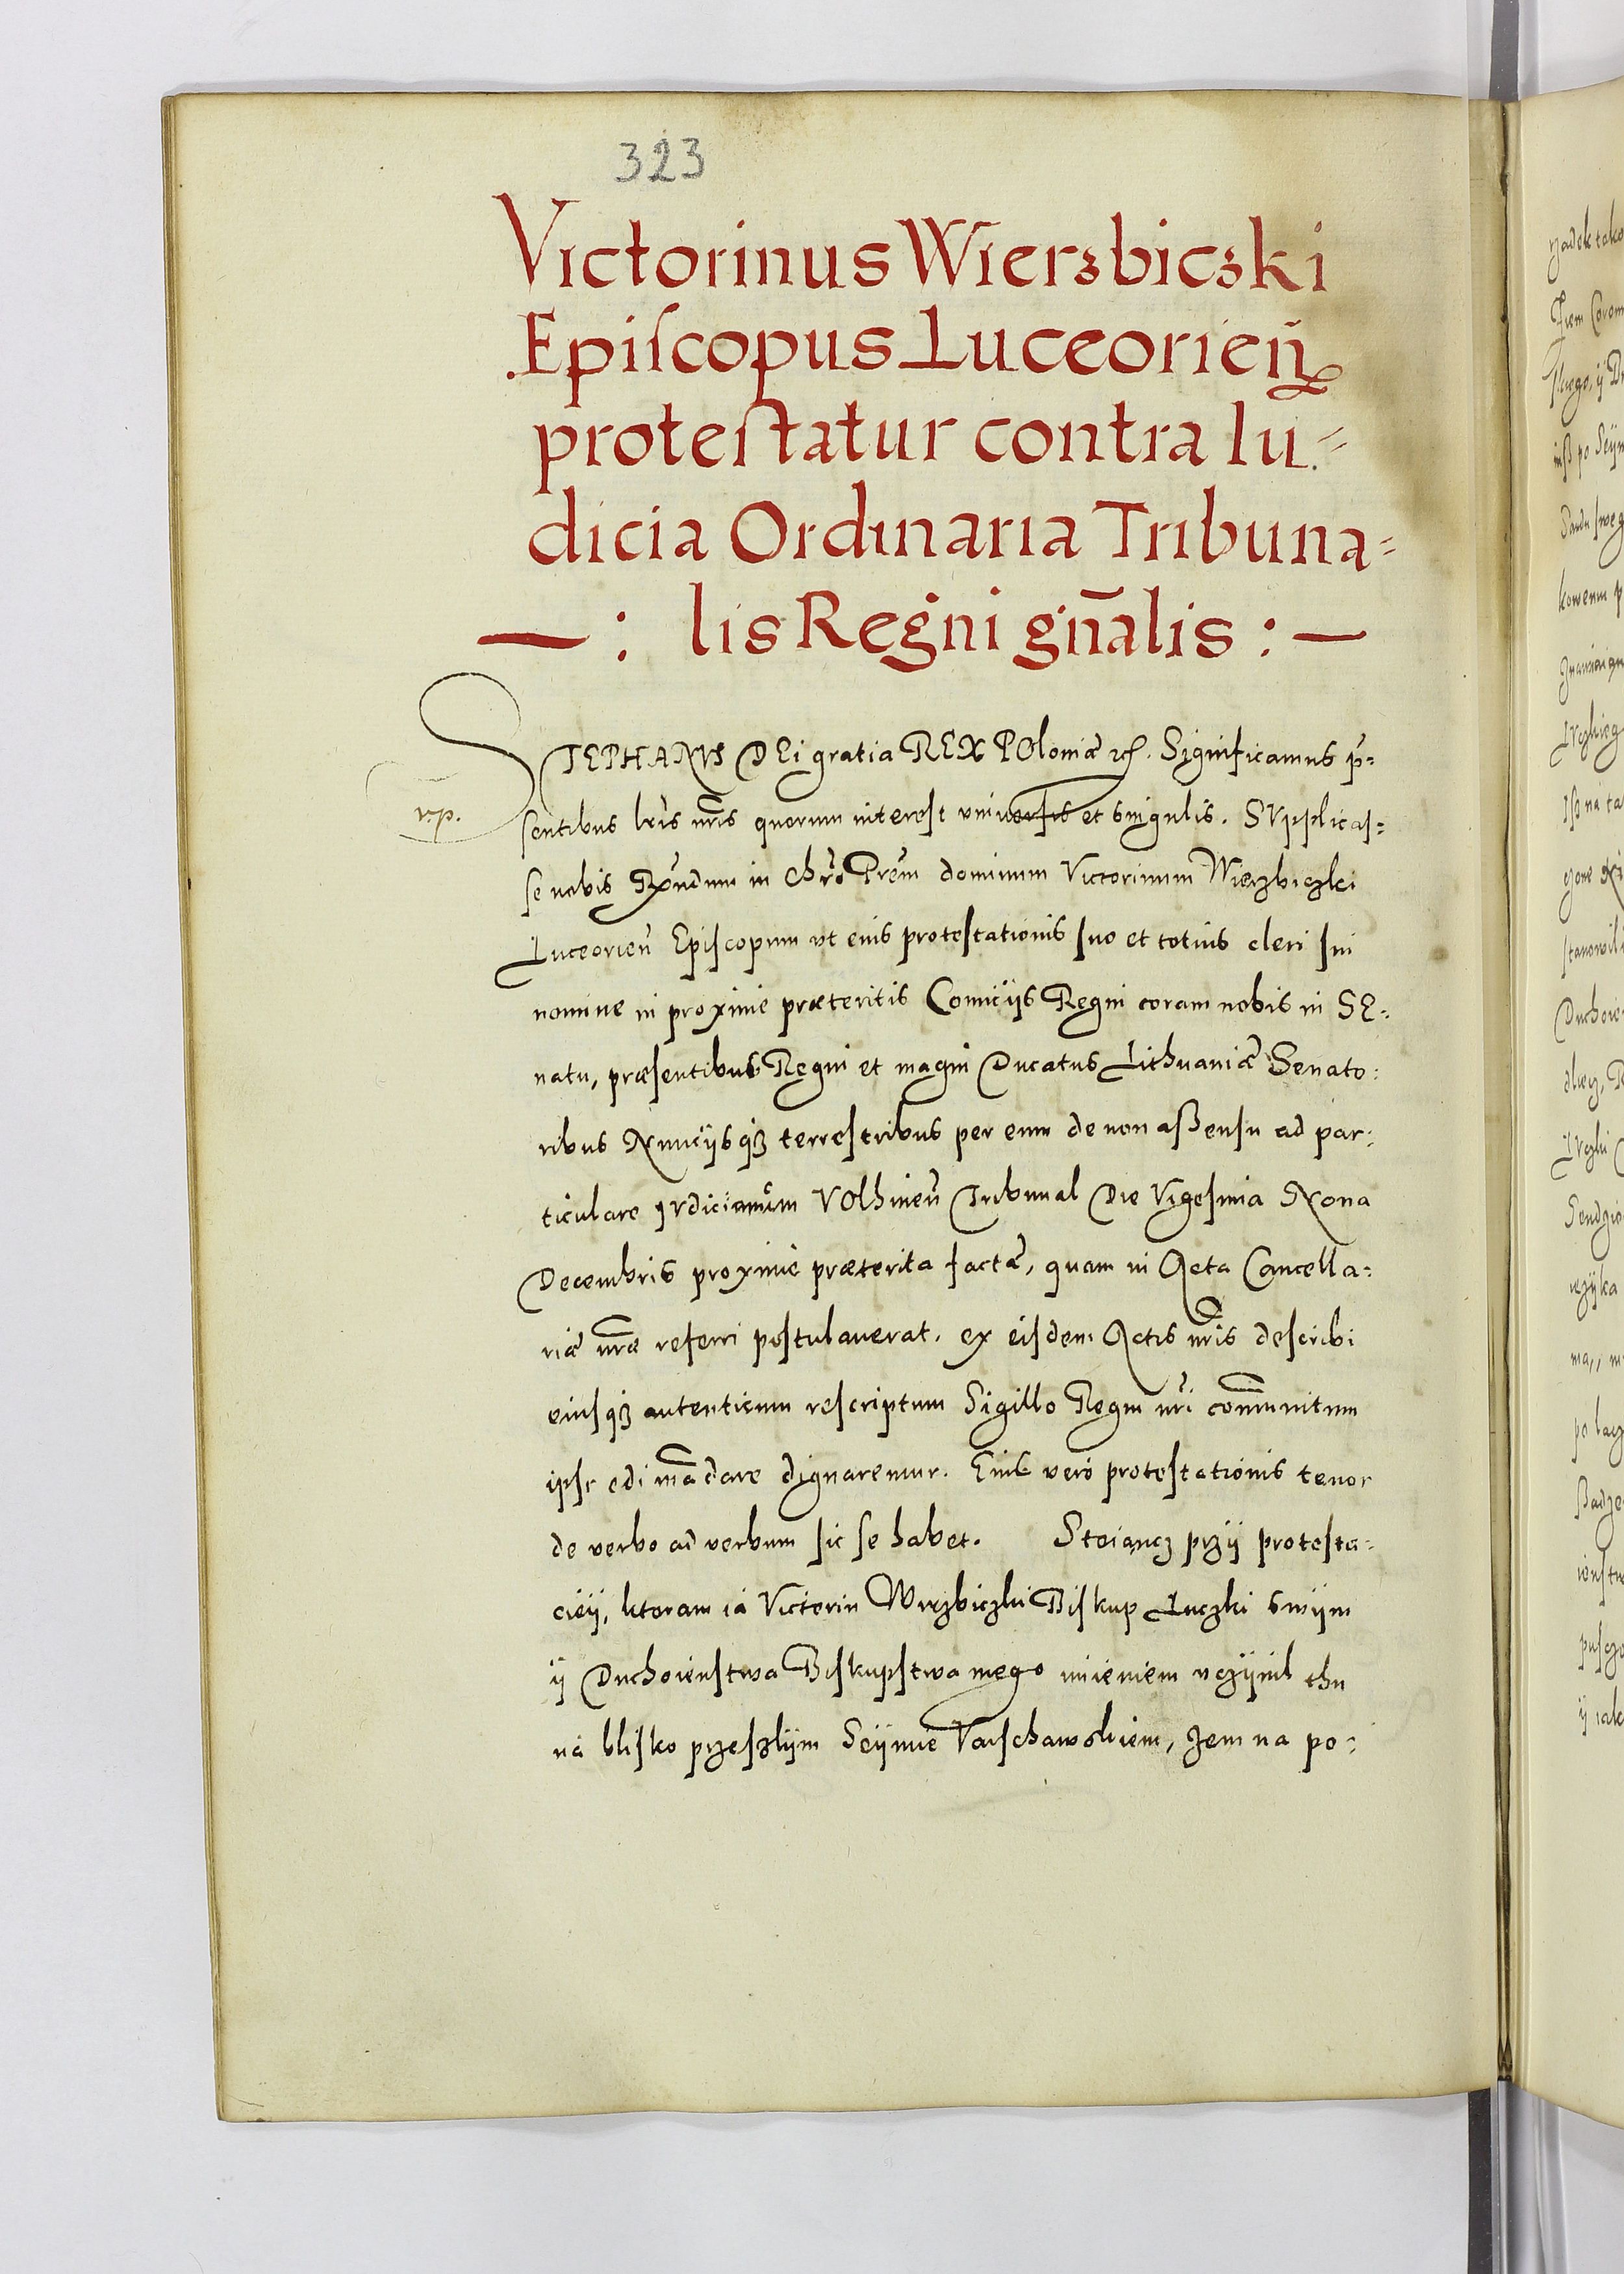 323
Victorinus Wierzbiczki
Episcopus Luceorien̄
protestatur contra Iu=
dicia Ordinaria Tribuna=
— : lis Regni gn̄alis : —
STEPHANVS DEi gratia REX POloniæ etc. Significamus p̄=
sentibus lr̄is nr̄is quorum interest vniuersis et singulis. SVpplicas=
se nobis Rx̄ndum in chr̄o Prēm dominum Victorinum Wierzbiczki
Luceorien̄ Episcopum vt eius protestationis suo et totius cleri sui
nomine in proxime præteritis Comicijs Regni coram nobis in SE=
natu, præsentibus Regni et magni Ducatus Lithuaniæ Senato:
ribus Nuncijsq3 terrestribus per eum de non aßensu ad par:
ticulare Iudiciorum VOlhinen̄ Tribunal Die Vigesima Nona
Decembris proxime præterita factæ, quam in Acta Cancella=
riæ nr̄æ referri postulauerat. ex eisdem Actis nr̄is describi
eiusq3 autenticum rescriptum Sigillo Regni nr̄i com̄unitum
ipsi edi mādare dignaremur. Eius vero protestationis tenor
de verbo ad verbum sic se habet. Stoiancz przÿ protesta=
cieÿ, ktoram ia Victorin Wirzbiczki Biskup Luczki swÿm
ÿ Duchoienstwa Biskupstwa mego imieniem vczÿnil thu
na blisko przeszlÿm Seÿmie Varschawskiem, zem na po=